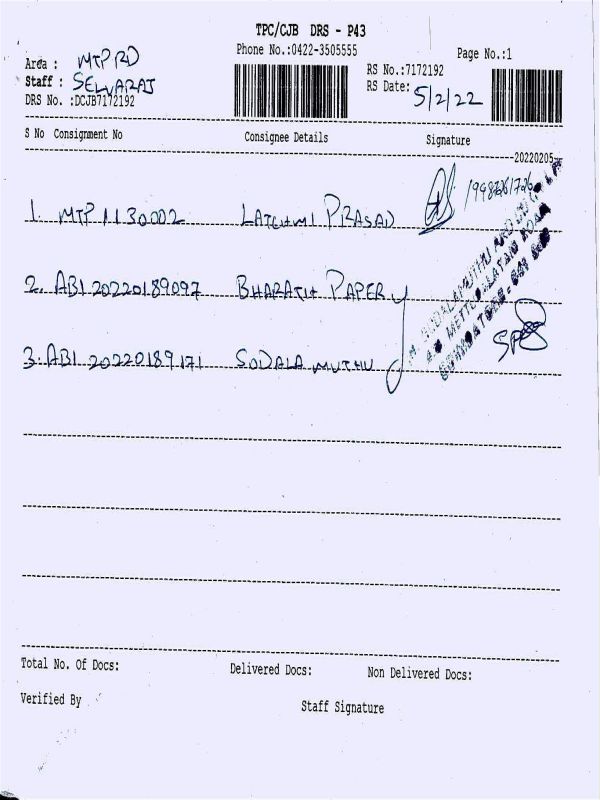 TPC/CJB DRS - P43
Phone No.:0422-3505555
Page No.:1
Area : MTP RD
Staff : SELVARAJ
DRS No. :DCJB7172192
RS No.:7172192
RS Date: 5/2/22
S No Consignment No Consignee Details Signature
20220205
1. MTP 1130002 LATCHMI PRASAD
2. ABI 20220189097 BHARATH PAPER
3. ABI 20220189171 SODALAMUTHU
Total No. Of Docs: Delivered Docs: Non Delivered Docs:
Verified By Staff Signature